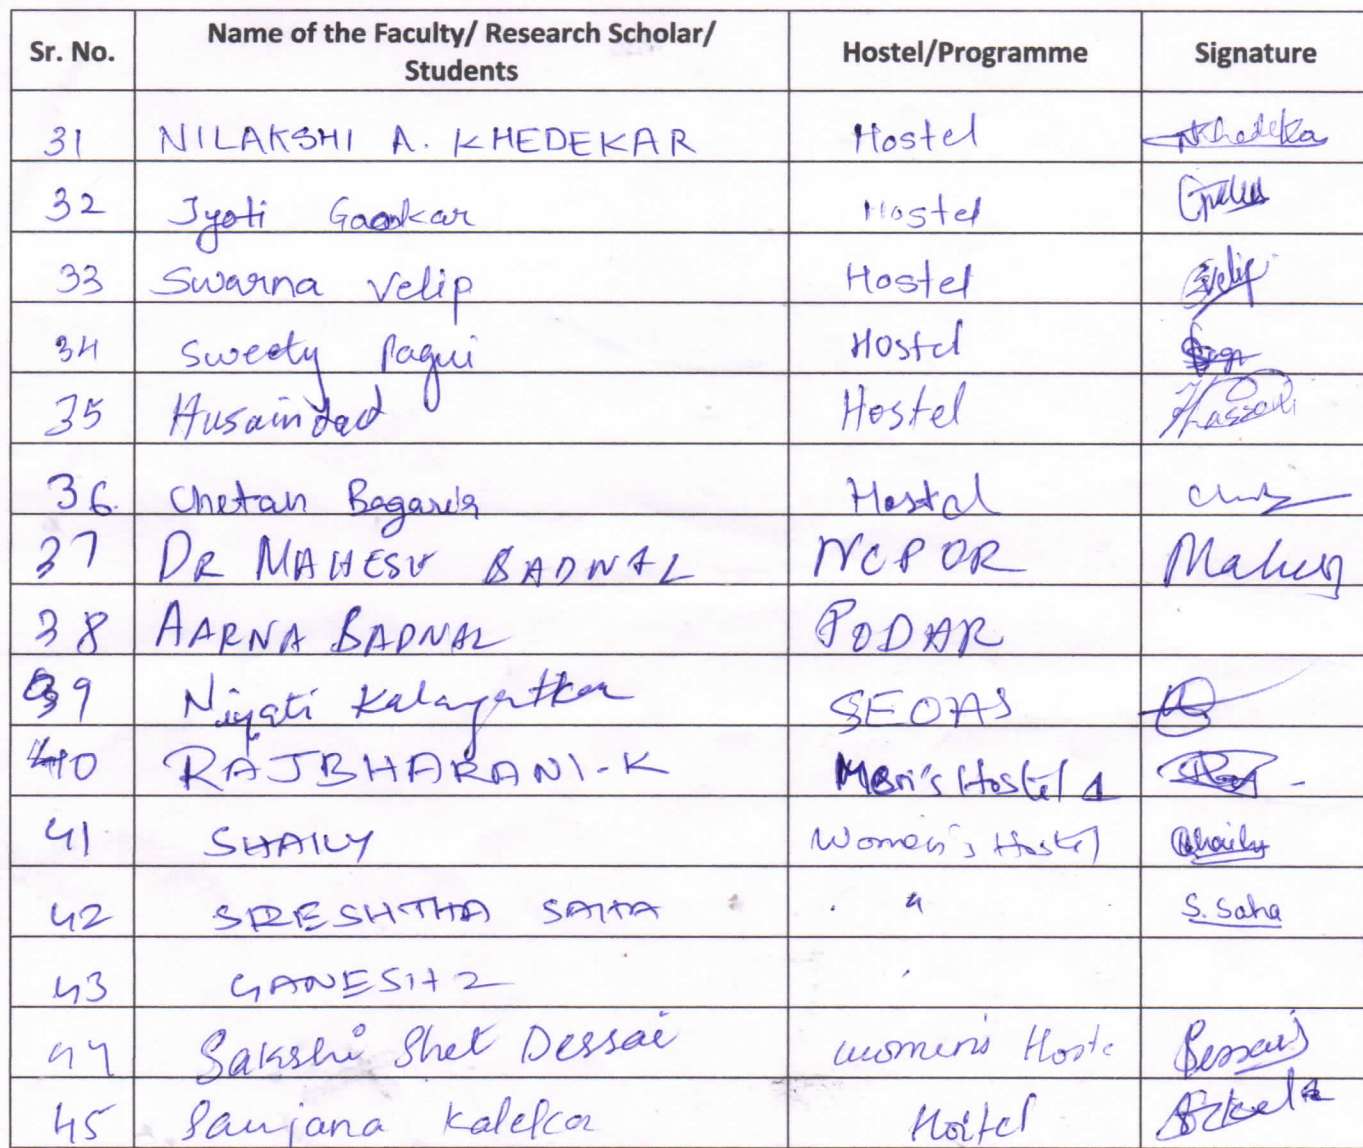 Sr. No. Name of the Faculty/ Research Scholar/ Students Hostel/Programme Signature
31 NILAKSHI A. KHEDEKAR Hostel
32 Jyoti Gaonkar Hostel
33 Swarna Velip Hostel Svelip
34 Sweety Pagui Hostel
35 Husaindad Hostel
36. Chetan Hostel
37 DR MAHESH BADNAL NCPOR Mahesh
38 AARNA BADNAL PODAR
39 Niyati Kalangutkar SEOAS
40 RAJBHARANI-K Men's Hostel 1
41 SHAILY Women's Hostel Shaily
42 SRESHTHA SAHA . " S. Saha
43 GANESH 2
44 Sakshi Shet Dessai women's Hoste Dessai
45 Sanjana Kalelkar Hostel